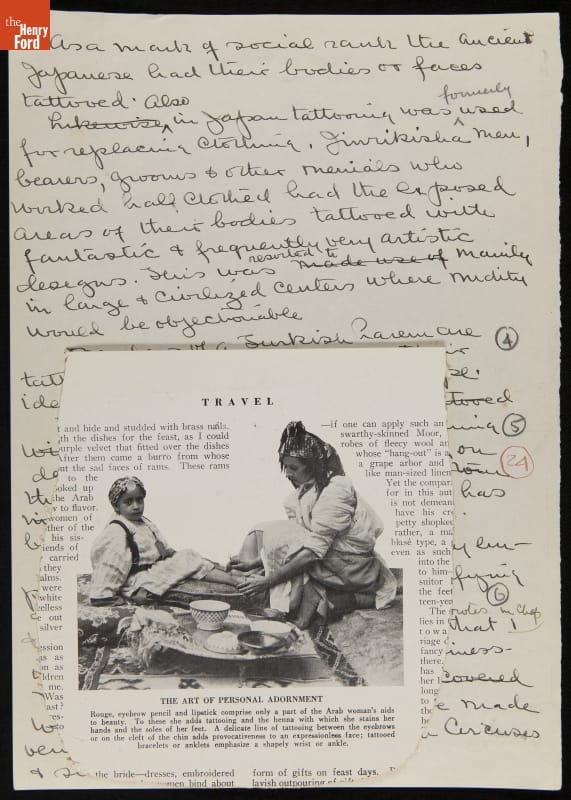 the
Henry
Ford
As a mark of social rank the ancient
Japanese had their bodies or faces
tattooed. Also
Likewise in Japan tattooing was formerly used
for replacing clothing. Jinrikisha men,
bearers, grooms & other menials who
worked half clothed had the exposed
areas of their bodies tattooed with
fantastic & frequently very artistic
designs. This was resorted to made use of mainly
in large & civilized centers where nudity
would be objectionable
Turkish harem are
4
5
24
on
has
6
notes in Chap
that I
covered
made
Circuses
TRAVEL
t and hide and studded with brass nails.
th the dishes for the feast, as I could
urple velvet that fitted over the dishes
fter them came a burro from whose
out the sad faces of rams. These rams
to the
ooked up
the Arab
y to flavor.
women of
ther of the
his sis-
iends of
carried
they
alms.
were
white
celless
e out
silver
ession
us as
on as
ldren
me.
Was
east?
res-
to
—if one can apply such an
swarthy-skinned Moor,
robes of fleecy wool an
whose "hang-out" is a
a grape arbor and
like man-sized linen
Yet the compar
for in this aut
is not demean
have his cr
petty shopkee
rather, a ma
blasé type, a
even as such
into the
to him
suitor
the feet
teen-yea
The
lies in
towa
riage c
fancy
there.
has
her l
long
to
the
THE ART OF PERSONAL ADORNMENT
Rouge, eyebrow pencil and lipstick comprise only a part of the Arab woman's aids
to beauty. To these she adds tattooing and the henna with which she stains her
hands and the soles of her feet. A delicate line of tattooing between the eyebrows
or on the cleft of the chin adds provocativeness to an expressionless face; tattooed
bracelets or anklets emphasize a shapely wrist or ankle.
the bride—dresses, embroidered
women bind about
form of gifts on feast days.
lavish outpouring of